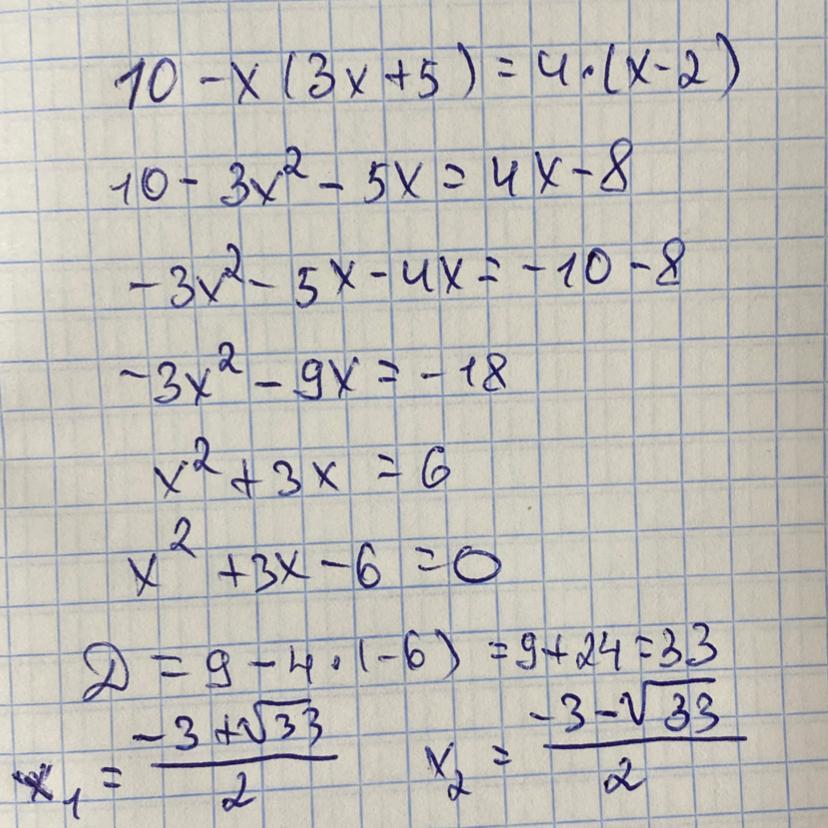 10 - x(3x+5) = 4·(x-2)
10 - 3x² - 5x = 4x - 8
-3x² - 5x - 4x = -10 - 8
-3x² - 9x = -18
x² + 3x = 6
x² + 3x - 6 = 0
D = 9 - 4·(-6) = 9 + 24 = 33
x₁ = (-3+√33)/2 x₂ = (-3-√33)/2